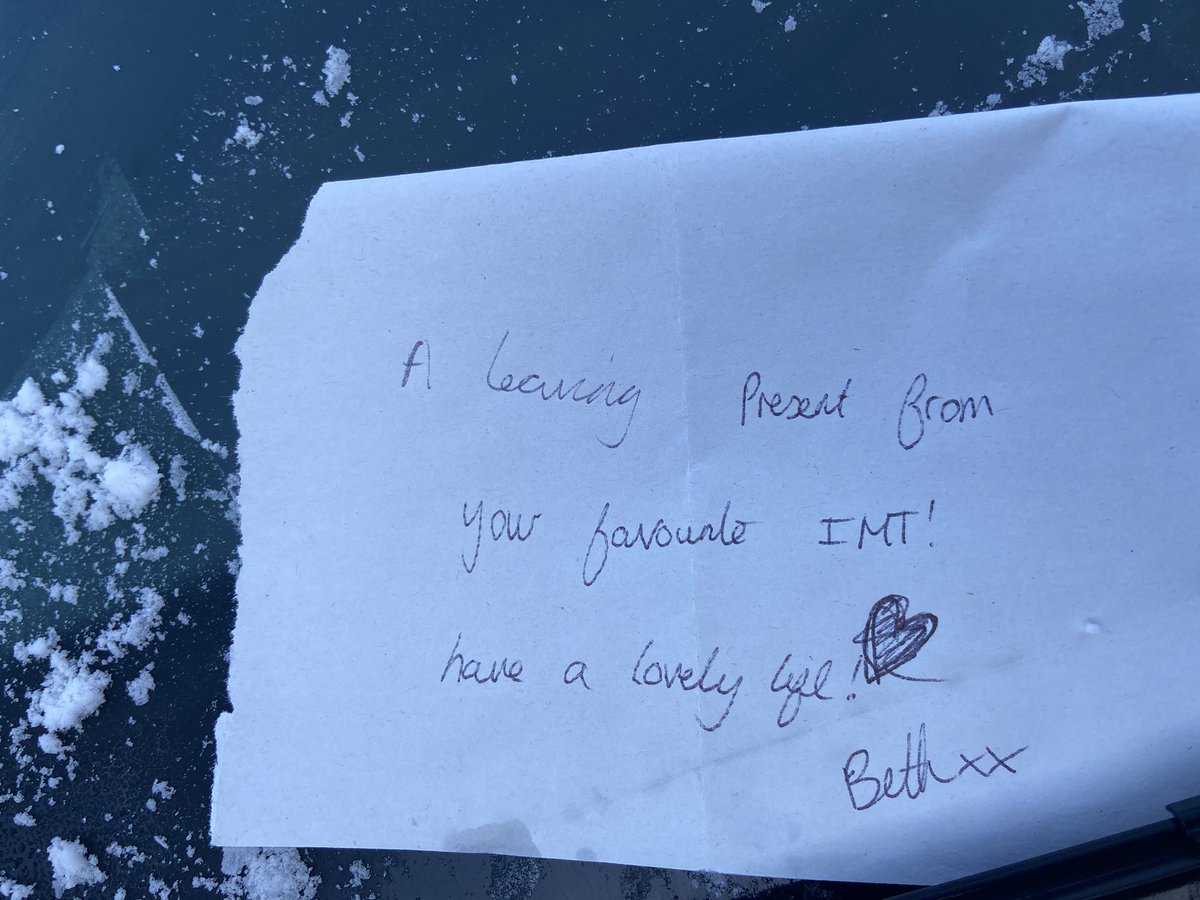 A leaving Present from
your favourite IMT!
have a lovely life!
Beth xx